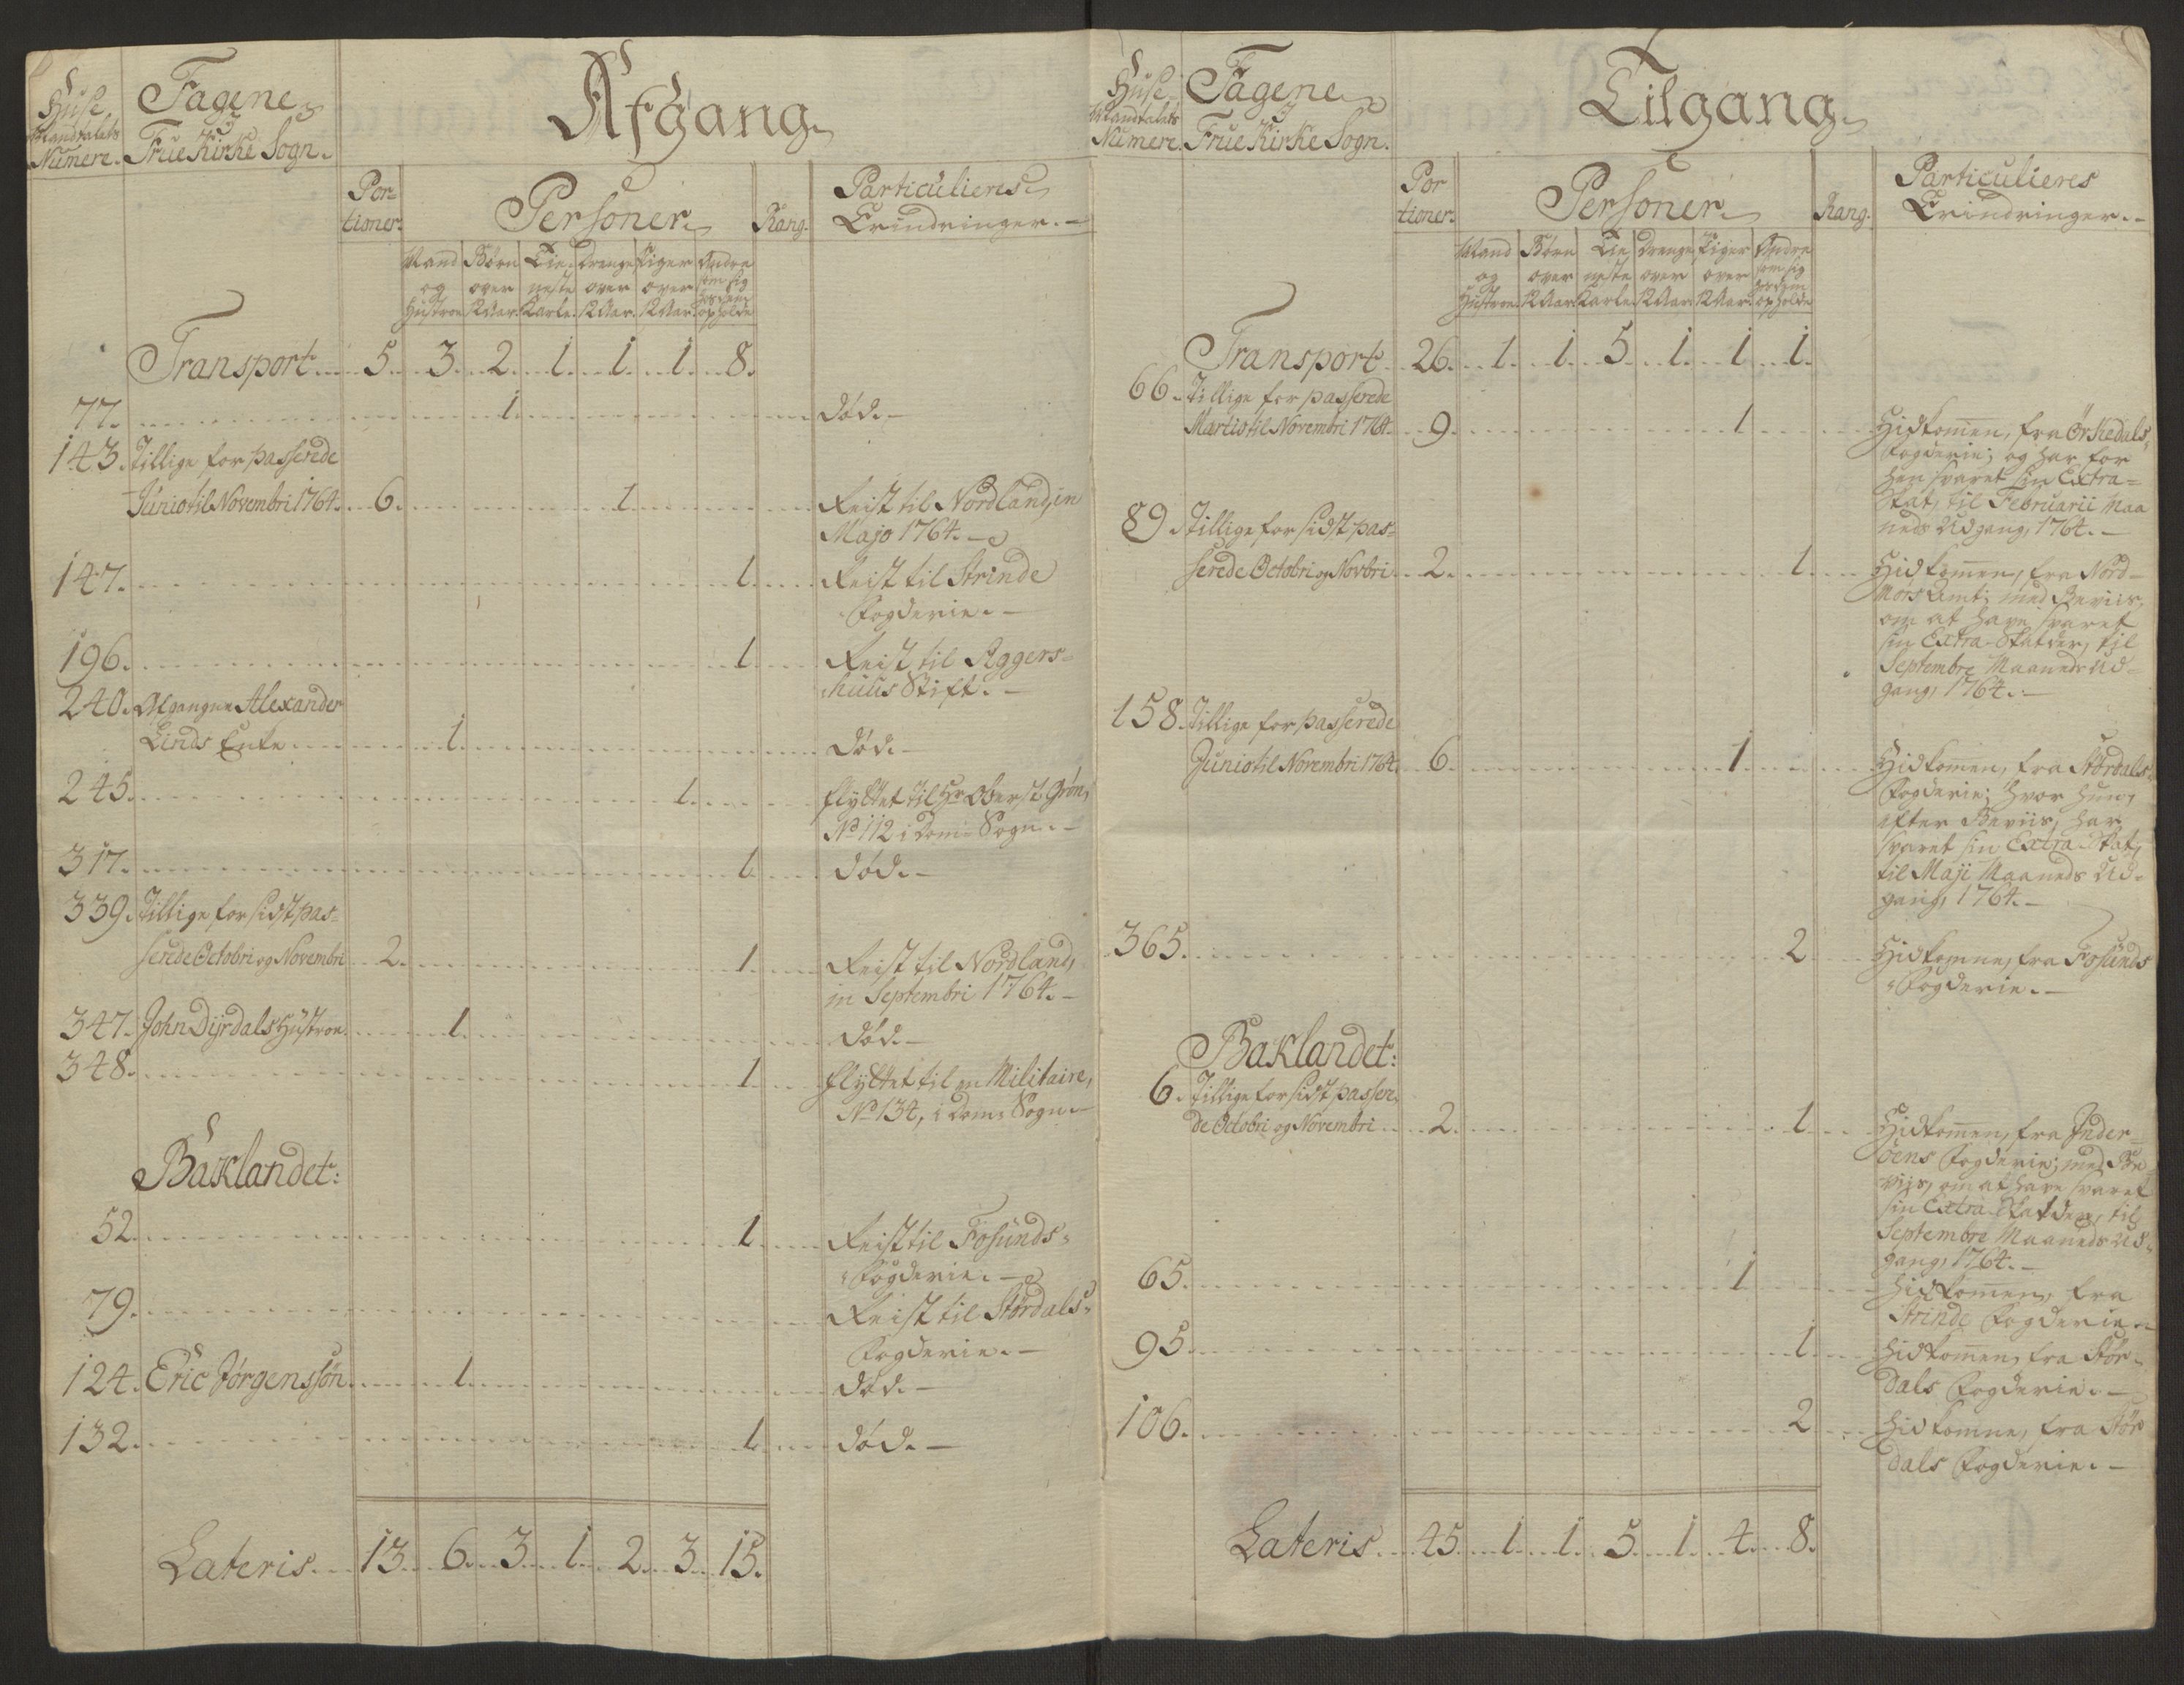 Huse Mandtalets Numere.
Tagene i Frue Kirke Sogn.
Afgang.
Por-
tioner.
Personer
Rang.
Particulieres
Erindringer. -
Mand og Hustroe
Børn over 12 Aar.
Tieneste Karle.
Drenge over 12 Aar.
Piger over 12 Aar.
Andre som sig hos dem opholde
Transport. 5. 3. 2. 1. 1. 1. 8.
77. 1. død. -
143. Tillige for passerede
Junio til Novembri 1764. 6. 1. Reist til Nordland, in
Majo 1764. -
147. 1. Reist til Strinde
Fogderie. -
196. 1. Reist til Aggers-
huus Stift. -
240. Afgangne Alexander
Linds Enke 1. død. -
245. 1. flyttet til Hr Oberst Grøn,
No 112 i Dom-Sogn. -
317. 1. død. -
339. Tillige for sidst pas-
serede Octobri og Novembri 2. 1. Reist til Nordland,
in Septembri 1764. -
347. John Dyrdals Hustroe. 1. død. -
348. 1. flyttet til en Militaire,
No 134, i Doms Sogn. -
Baklandet:
52. 1. Reist til Fosunds-
Fogderie. -
79. Reist til Stördals-
Fogderie. -
124. Eric Jørgenssøn. 1. død. -
132. 1. død. -
Lateris. 13. 6. 3. 1. 2. 3. 15.
Huse Mandtalets Numere.
Tagene i Frue Kirke Sogn.
Tilgang.
Por
tioner.
Personer
Rang.
Particulieres
Erindringer. -
Mand og Hustroe.
Børn over 12 Aar.
Tieneste Karle.
Drenge over 12 Aar.
Piger over 12 Aar.
Andre som sig hos dem opholde
Transport. 26. 1. 1. 5. 1. 1. 1.
66. Tillige for passerede
Martio til Novembri 1764. 9. 1. Hidkommen, fra Örkedals
Fogderie; og har for
hen svaret sin Extra-
Skat, til Februarii Maa
neds Udgang, 1764. -
89. Tillige for sidst pas-
serede Octobri og Novbri. 2. 1. Hidkommen, fra Nord-
Mors Amt; med Beviis,
om at have svaret
sin Extra-Skatder, til
Septembre Maaneds Ud-
gang, 1764. -
158. Tillige for passerede
Junio til Novembri 1764. 6. 1. Hidkommen, fra Stördals
Fogderie; hvor hun,
efter Beviis, har
svaret sin Extra-Skat,
til Maji Maaneds Ud-
gang, 1764. -
365. 2 Hidkomne, fra Fosunds
Fogderie. -
Baklandet:
6. Tillige for sidst passere
de Octobri og Novembri 2. 1. Hidkommen, fra Inder-
öens Fogderie; med Be
viis, om at have svaret
sin Extra-Skatder, til
Septembre Maaneds Ud-
gang, 1764. -
65. 1 Hidkommen, fra
Strinde Fogderie -
95. 1. Hidkommen, fra Stör-
dals Fogderie. -
106. 2 Hidkomne, fra Stör
dals Fogderie. -
Lateris. 45. 1. 1. 5. 1. 4. 8.